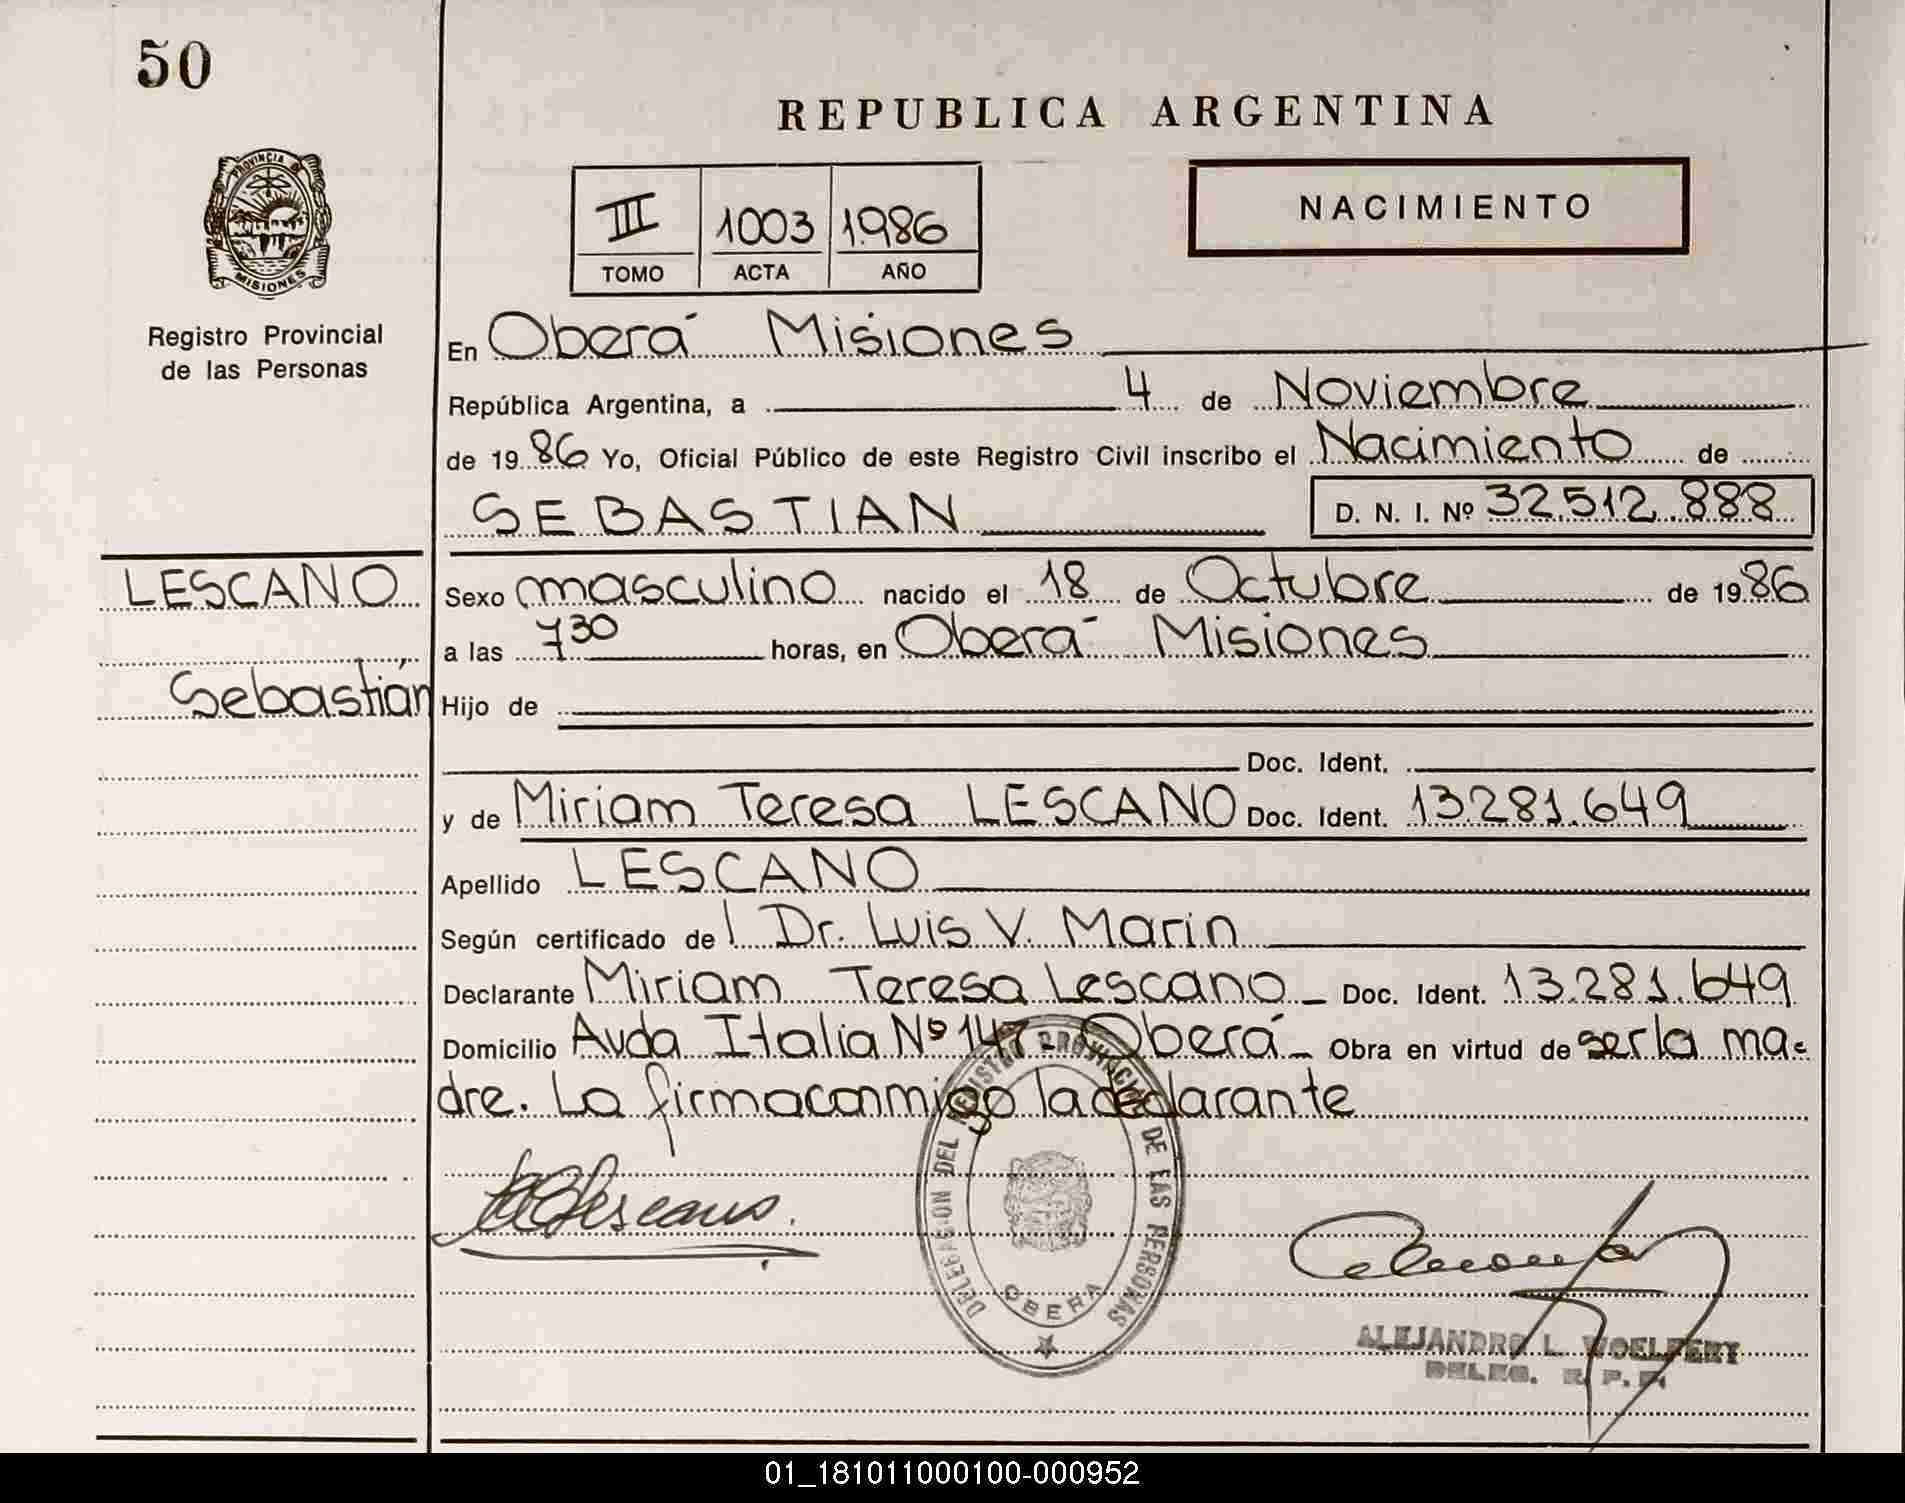 50
REPUBLICA ARGENTINA
PROVINCIA DE
MISIONES
III 1003 1.986
TOMO ACTA AÑO
NACIMIENTO
Registro Provincial
de las Personas
En Oberá Misiones
República Argentina, a 4 de Noviembre
de 1986 Yo, Oficial Público de este Registro Civil inscribo el Nacimiento de
SEBASTIAN D. N. I. Nº 32.512.888
LESCANO
Sebastián
Sexo masculino nacido el 18 de Octubre de 1986
a las 7 30 horas, en Oberá Misiones
Hijo de
Doc. Ident.
y de Miriam Teresa LESCANO Doc. Ident. 13.281.649
Apellido LESCANO
Según certificado de l Dr. Luis V. Marin
Declarante Miriam Teresa Lescano Doc. Ident. 13.281.649
Domicilio Avda Italia Nº 147 - Oberá Obra en virtud de ser la ma-
dre. La firma conmigo la declarante
DELEGACION DEL REGISTRO PROVINCIAL DE LAS PERSONAS
OBERA
Lescano.
ALEJANDRO L. WOELFERT
DELEG. R. P. P.
01_181011000100-000952